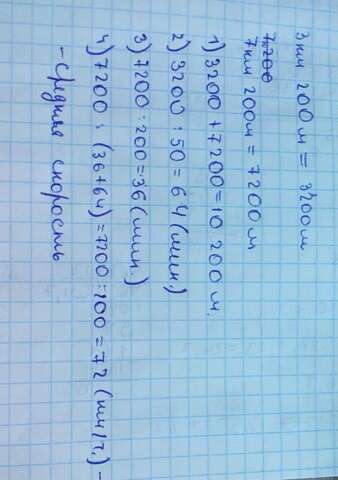 3 км 200 м = 3200 м
7,200
7 км 200 м = 7200 м
1) 3200 + 7200 = 10 200 м.
2) 3200 : 50 = 64 (мин.)
3) 7200 : 200 = 36 (мин.)
4) 7200 : (36+64) = 7200 : 100 = 72 (км/ч.) –
– средняя скорость